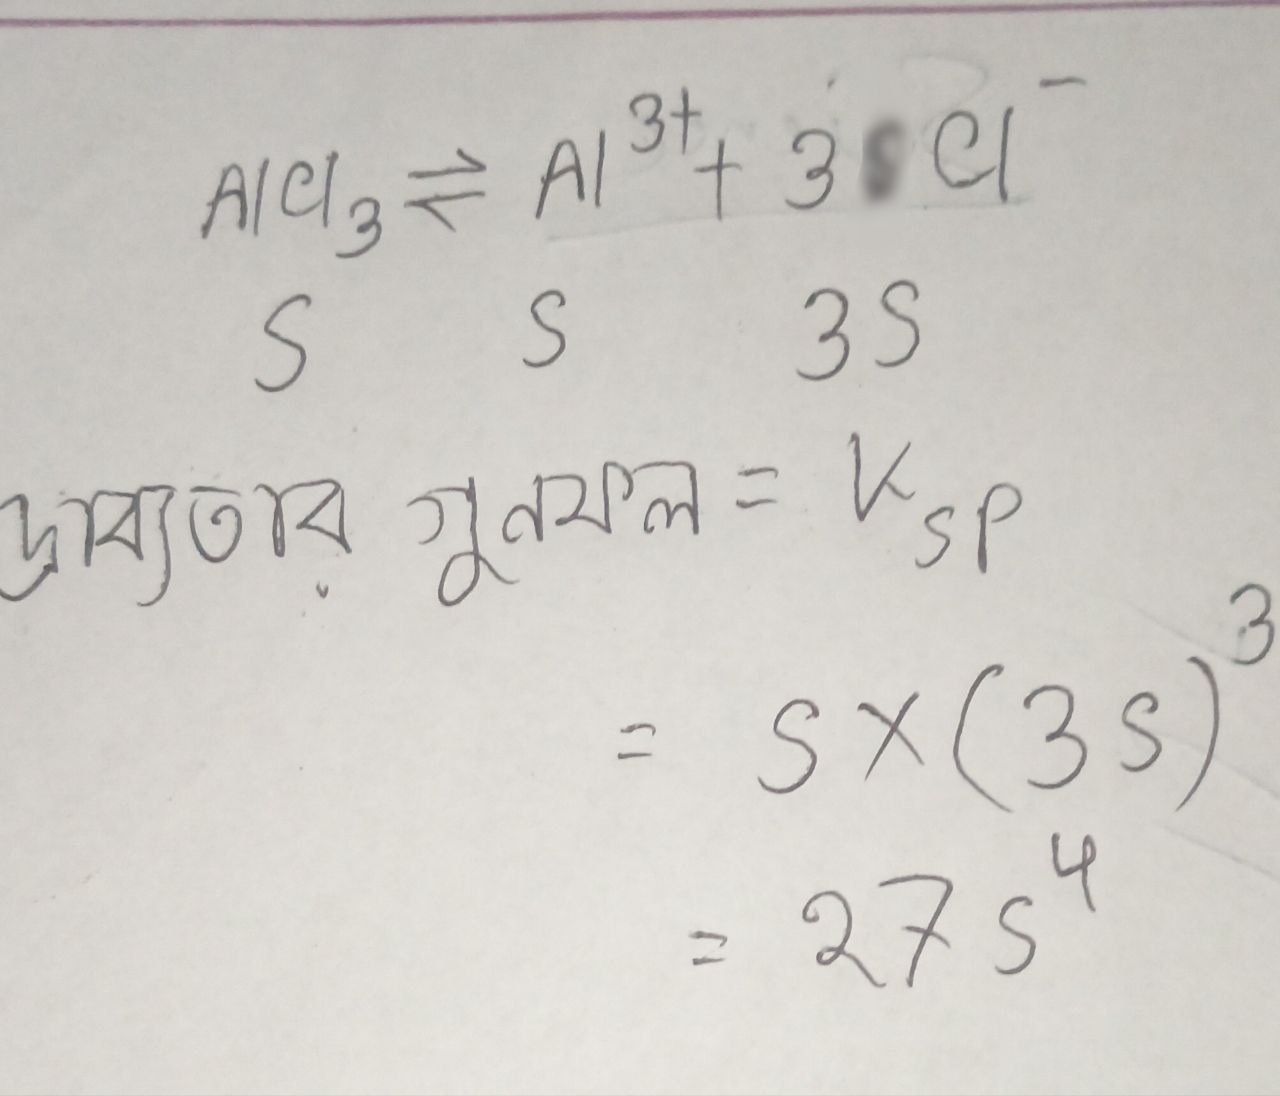 AlCl₃ ⇌ Al³⁺ + 3 Cl⁻
S S 3S
দ্রাব্যতার গুনফল = Ksp
= S × (3S)³
= 27 S⁴